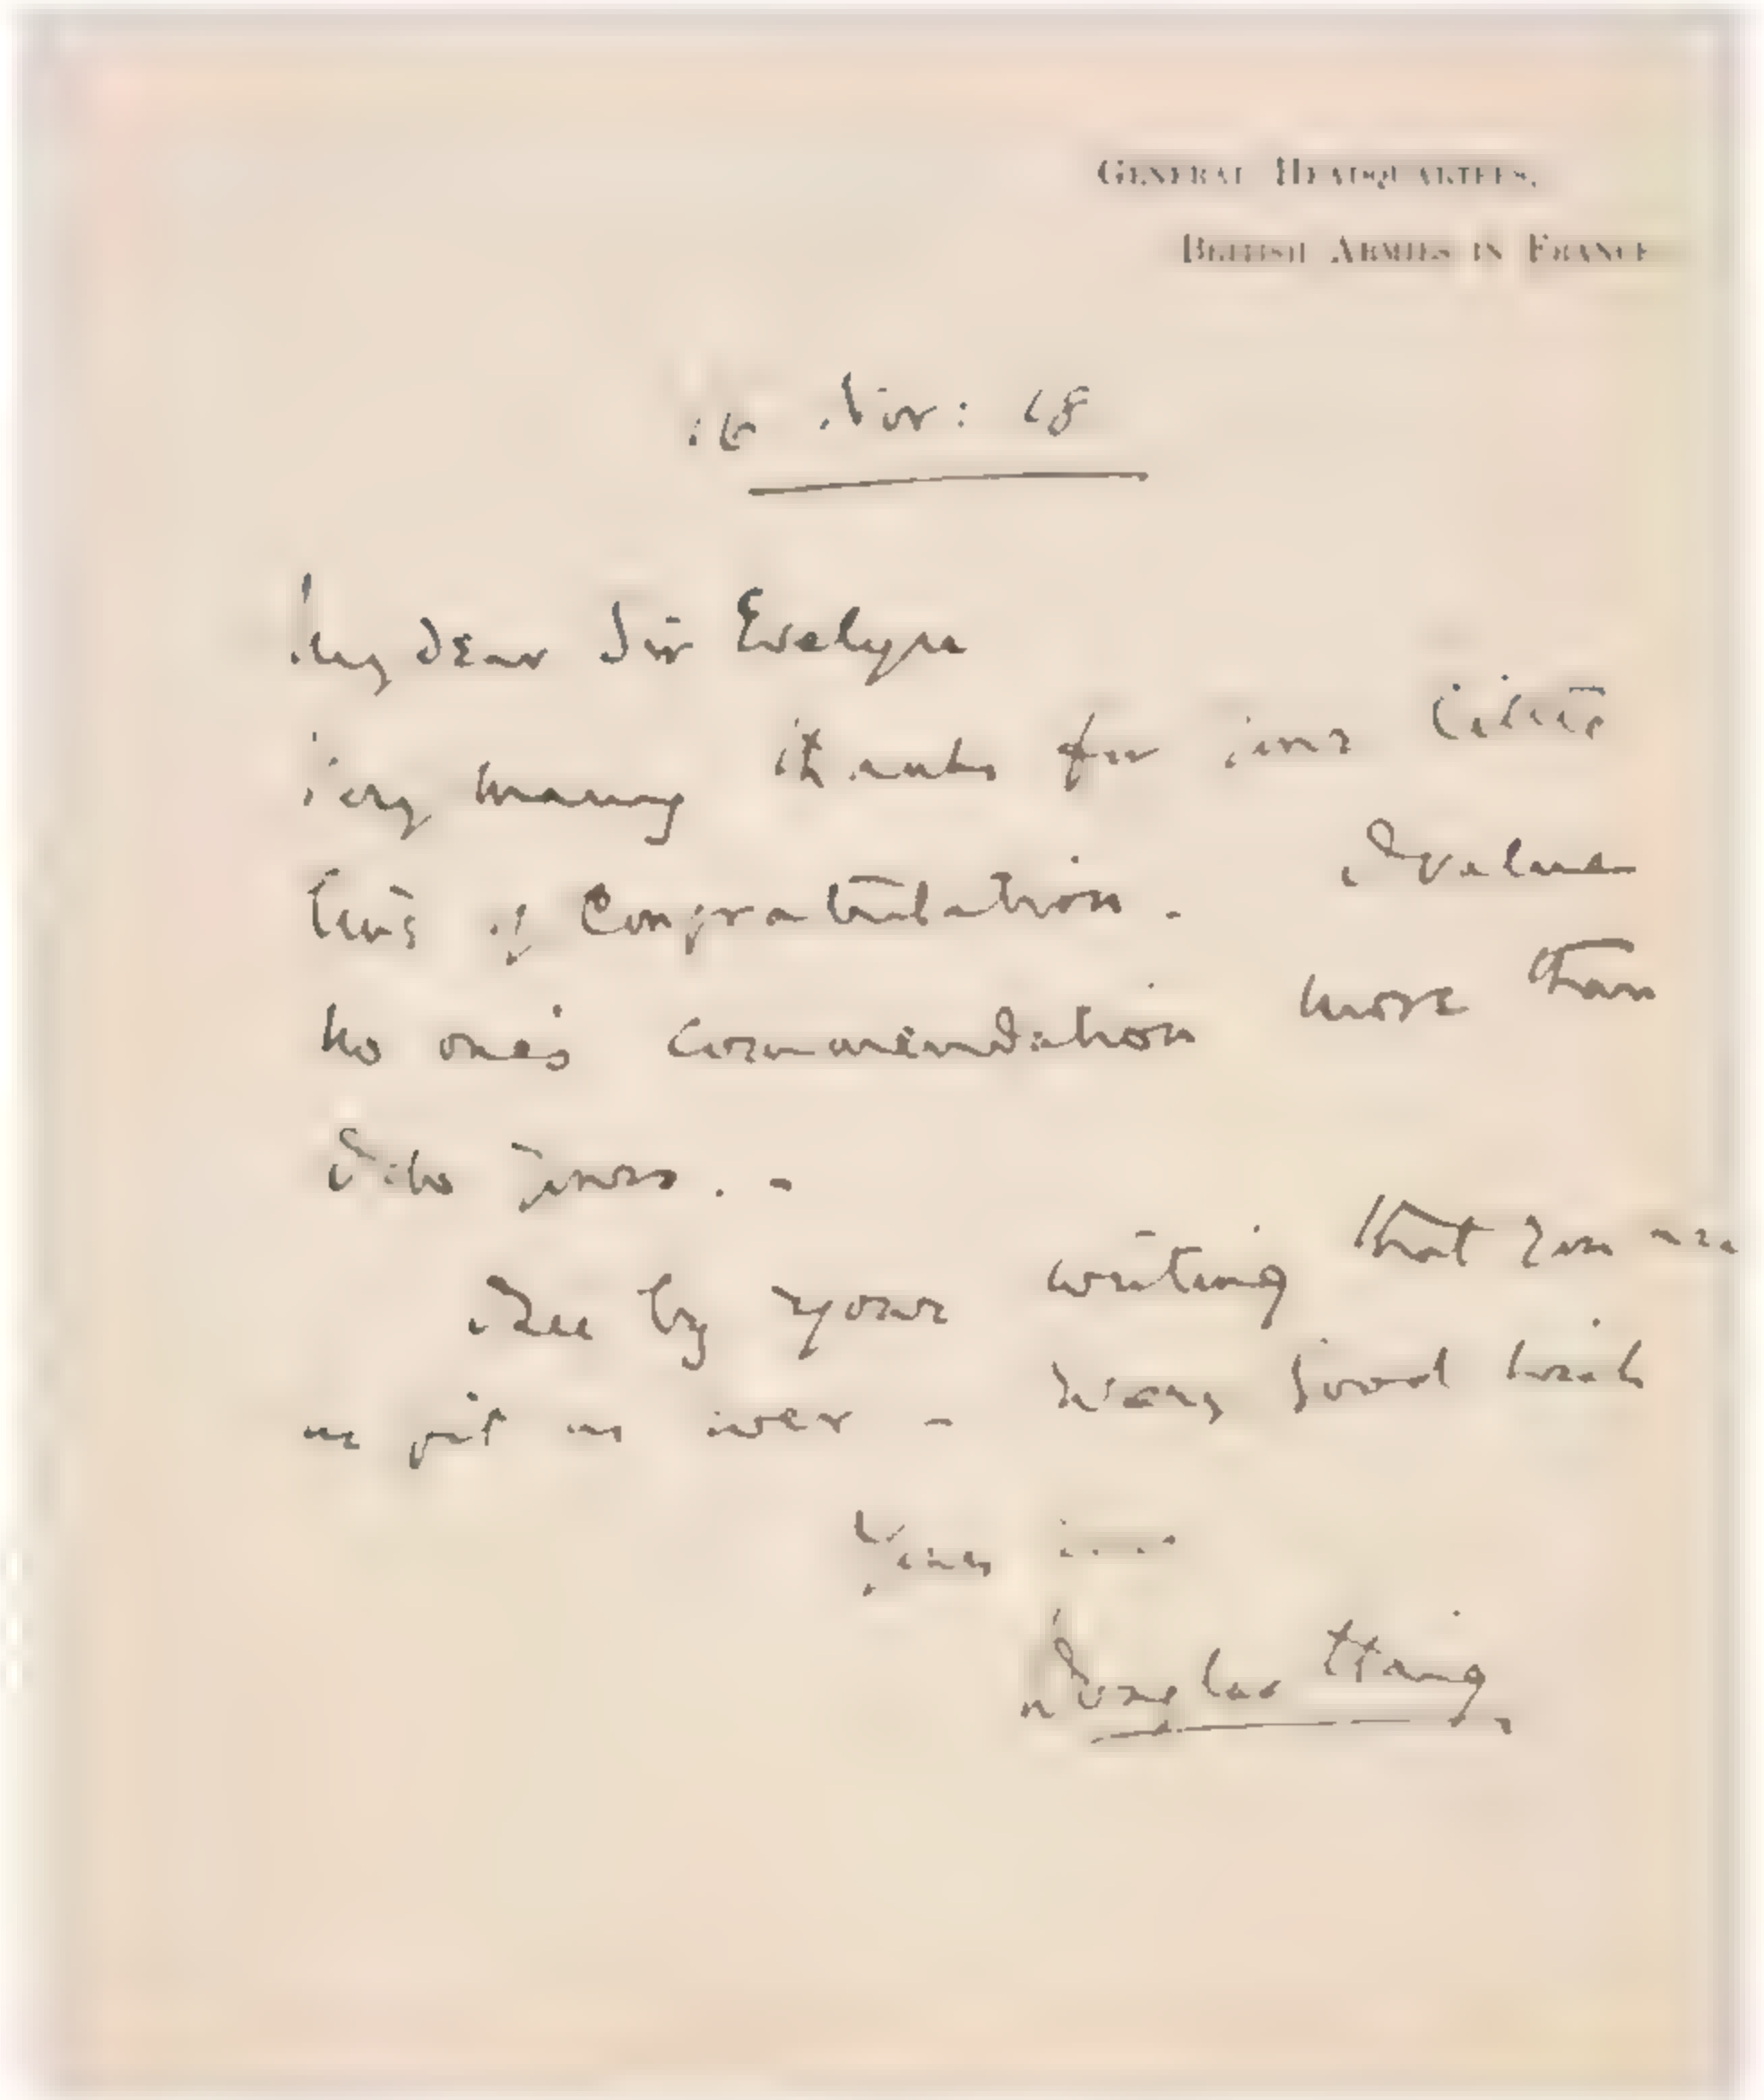 GENERAL HEADQUARTERS,
BRITISH ARMIES IN FRANCE
16 Nov: 18
My dear Sir Evelyn
Very many thanks for your
lines of Congratulation. I value
no one's commendation more than
I do yours. -
I see by your writing that you are
as fit as ever - Very good wish
Yours
Douglas Haig